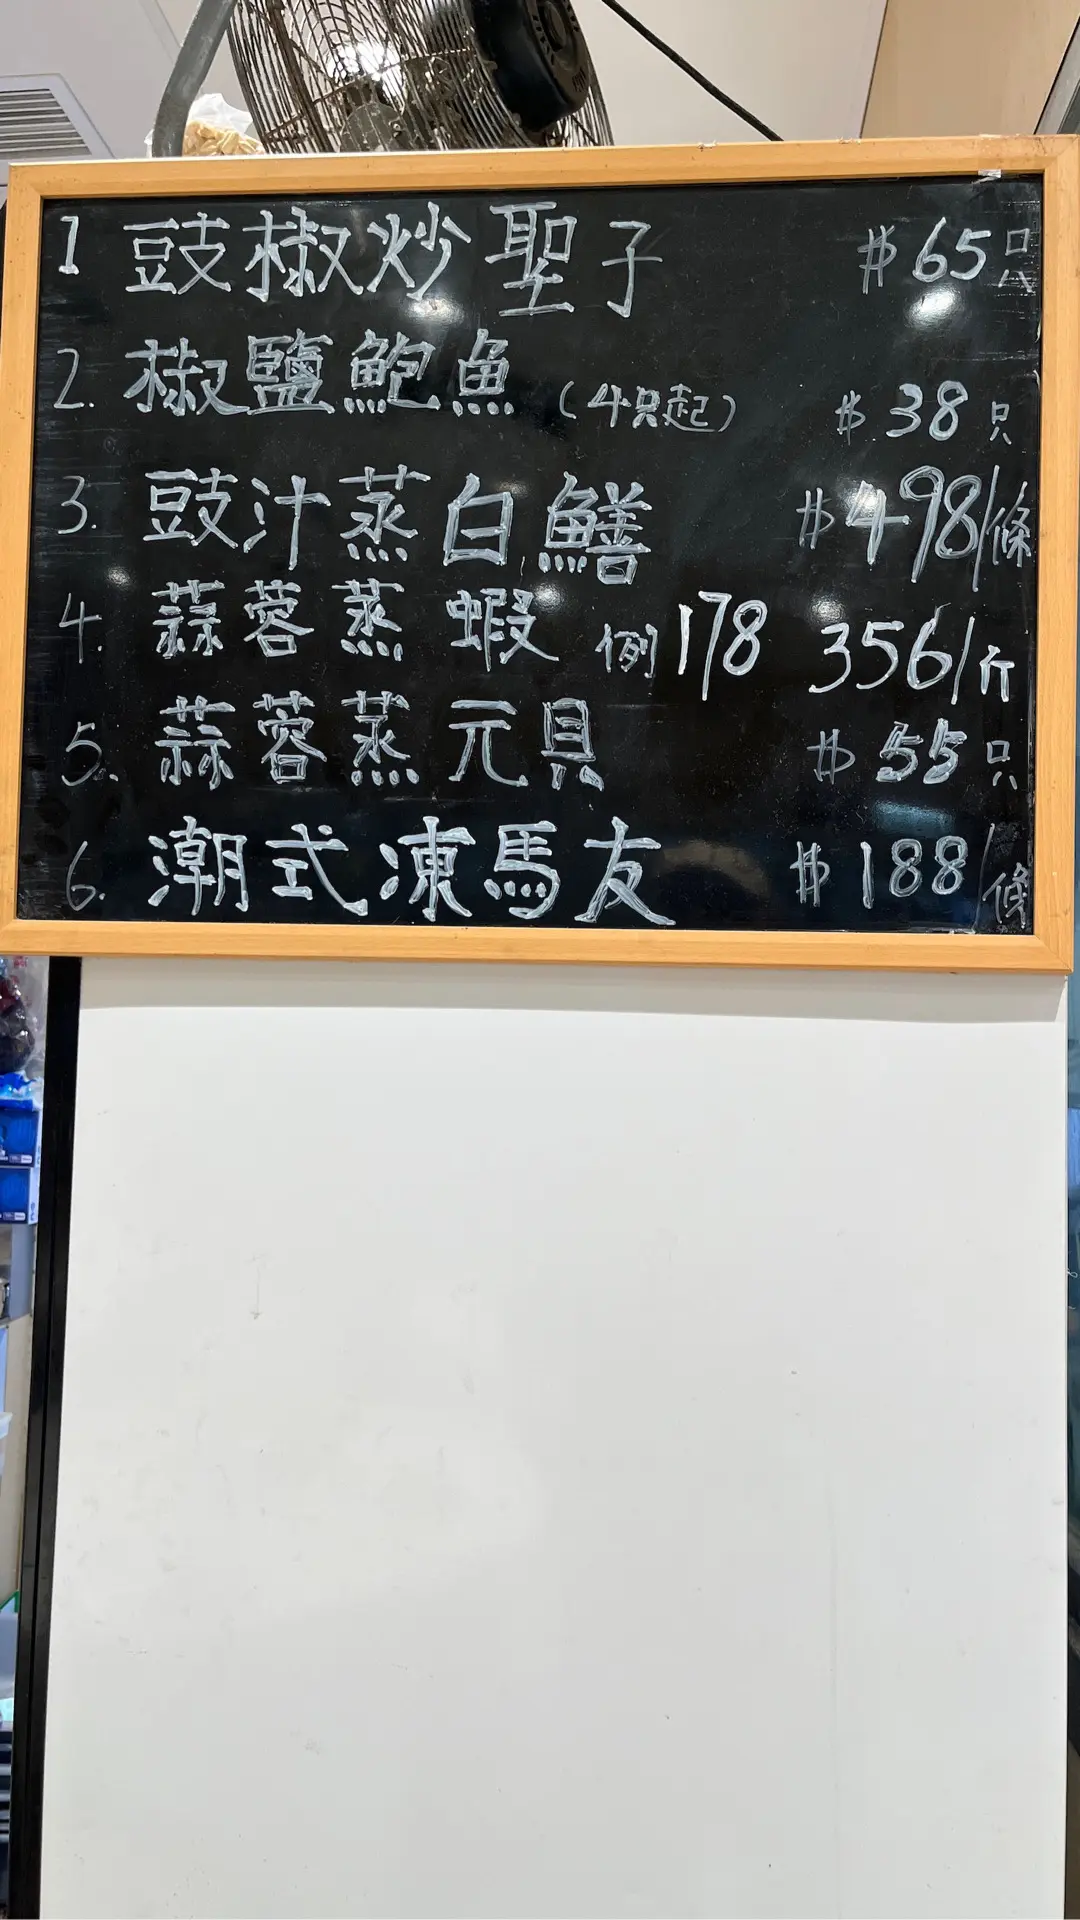 1 豉椒炒聖子 $65只
2. 椒鹽鮑魚 (4只起) $38只
3. 豉汁蒸白鱔 $498/條
4. 蒜蓉蒸蝦 例178 356/斤
5. 蒜蓉蒸元貝 $55只
6. 潮式凍馬友 $188/條